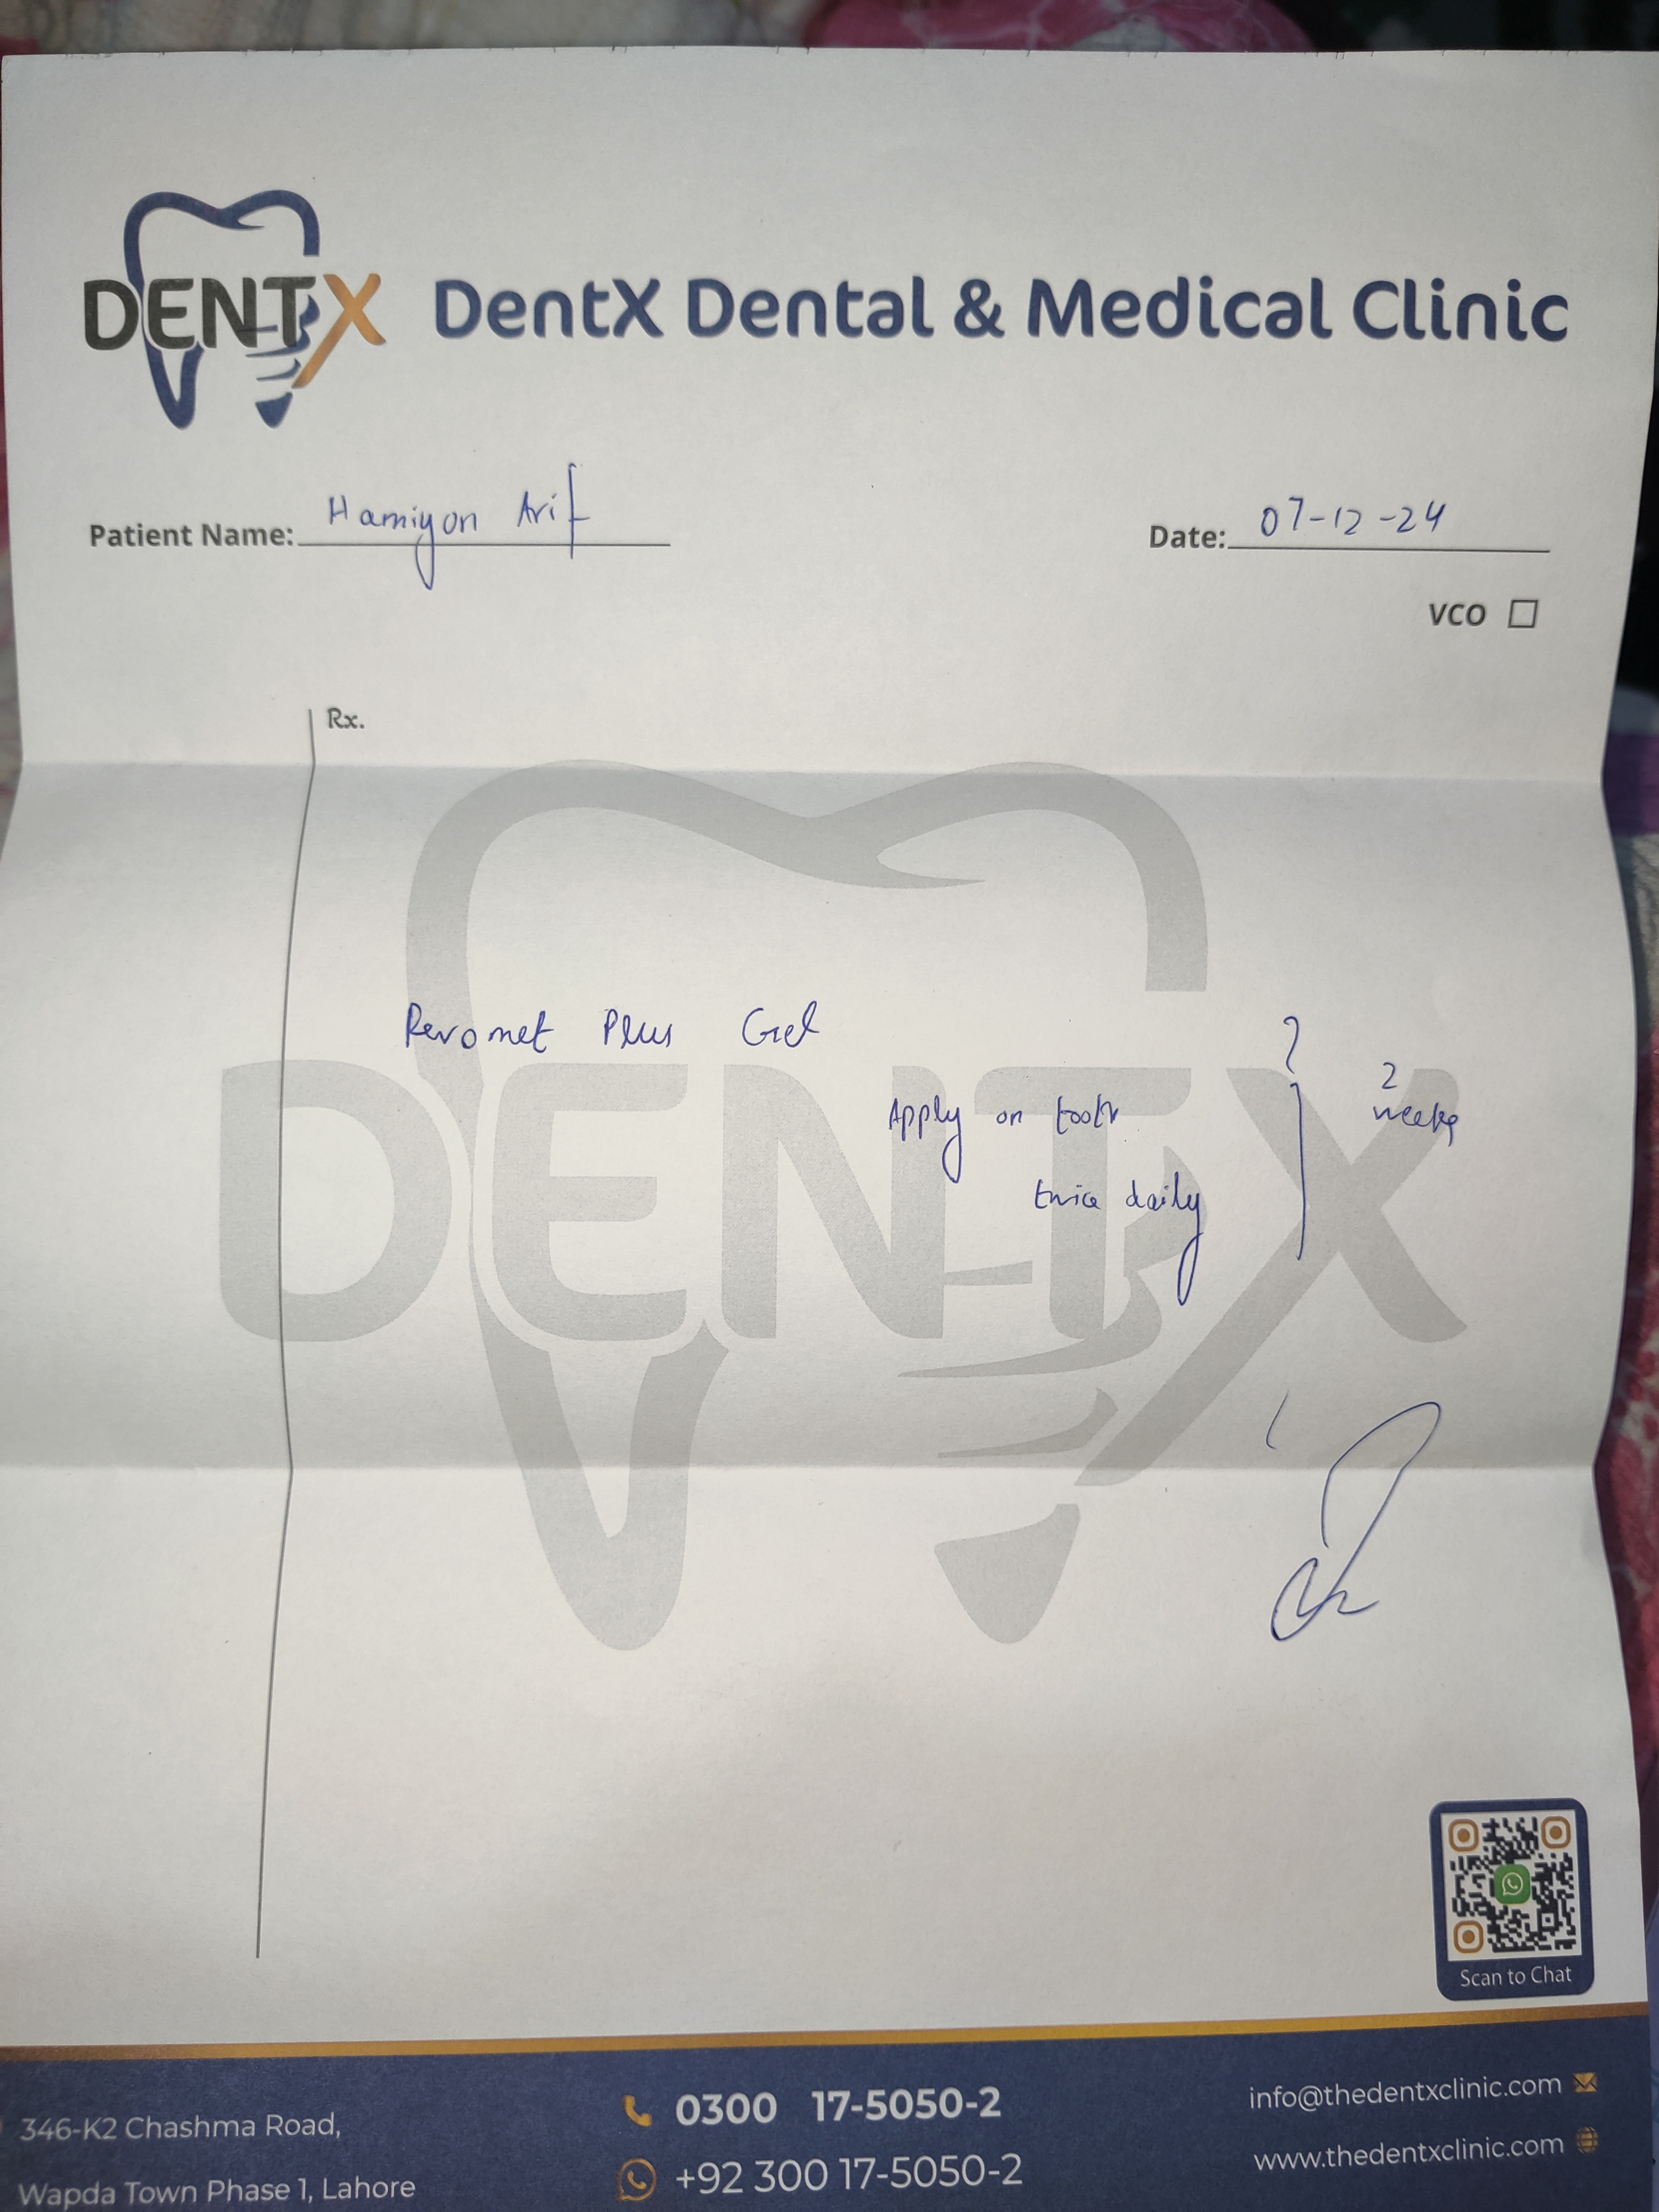 DENTX DentX Dental & Medical Clinic
Patient Name: Hamiyon Arif
Date: 07-12-24
VCO
Rx.
Revomet Plus Gel
Apply on tooth
twice daily
2
weeks
DENTX
Scan to Chat
346-K2 Chashma Road,
Wapda Town Phase 1, Lahore
0300 17-5050-2
+92 300 17-5050-2
info@thedentxclinic.com
www.thedentxclinic.com